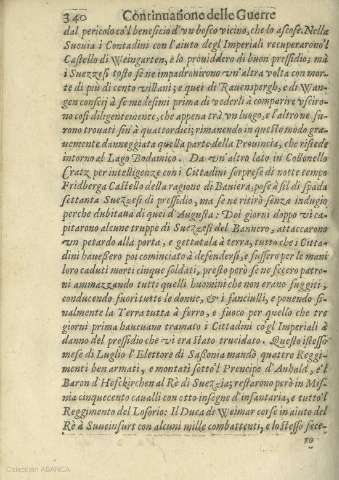 340 Continuatione delle Guerre
dal pericolo co'l beneficio d'vn bosco vicino, che lo ascose. Nella
Sueuia i Contadini con l'aiuto degl' Imperiali recuperarono'l
Castello di Weingarten, e lo prouidero di buon presidio; mà
i Suezzesi tosto se ne impadronirono vn'altra volta con mor-
te di più di cento villani; e quei di Rauenspergh, e di Wan-
gen conscij à se medesimi prima di vederli à comparire vsciro-
no così diligentemente, che appena trà vn luogo, e l'altro ne fu-
rono trouati sin à quattordici; rimanendo in questo modo gra-
uemente danneggiata quella parte della Prouincia, che risiede
intorno al Lago Bodamico. Da vn'altro lato in Collonello
Cratz per intelligenze con i Cittadini sorprese di notte tempo
Fridberga Castello della ragione di Bauiera, pose à fil di spada
settanta Suezzesi di presidio, ma se ne ritirò senza indugio
perche dubitana di quei d'Augusta: Doi giorni doppo vi ca-
pitarono alcune truppe di Suezzesi del Bannero, attaccarono
vn petardo alla porta, e gettatala à terra, tutto che i Citta-
dini hauessero poi cominciato à defendersi, e fussero per le mani
loro caduti morti cinque soldati, presto però se ne fecero patro-
ni ammazzando tutti quelli huomini che non erano fuggiti,
conducendo fuori tutte le donne, & i fanciulli, e ponendo fi-
ualmente la Terra tutta à ferro, e fuoco per quello che tre
giorni prima haueuano tramato i Cittadini co gl Imperiali à
danno del pressidio che vi era stato trucidato. Questo istesso
mese di Luglio l'Elettore di Sassonia mandò quattro Reggi-
menti ben armati, e montati sotto'l Prencipe d'Anhald, e'l
Baron d'Hofkirchen al Rè di Suezzia; restarono però in Mis-
nia cinquecento caualli con otto insegne d'infantaria, e tutto'l
Reggimento del Losorio: Il Duca di Weimar corse in aiuto del
Rè à Sueeinfurt con alcuni mille combattenti, e lo stesso fece-
ro
Colección ABANCA